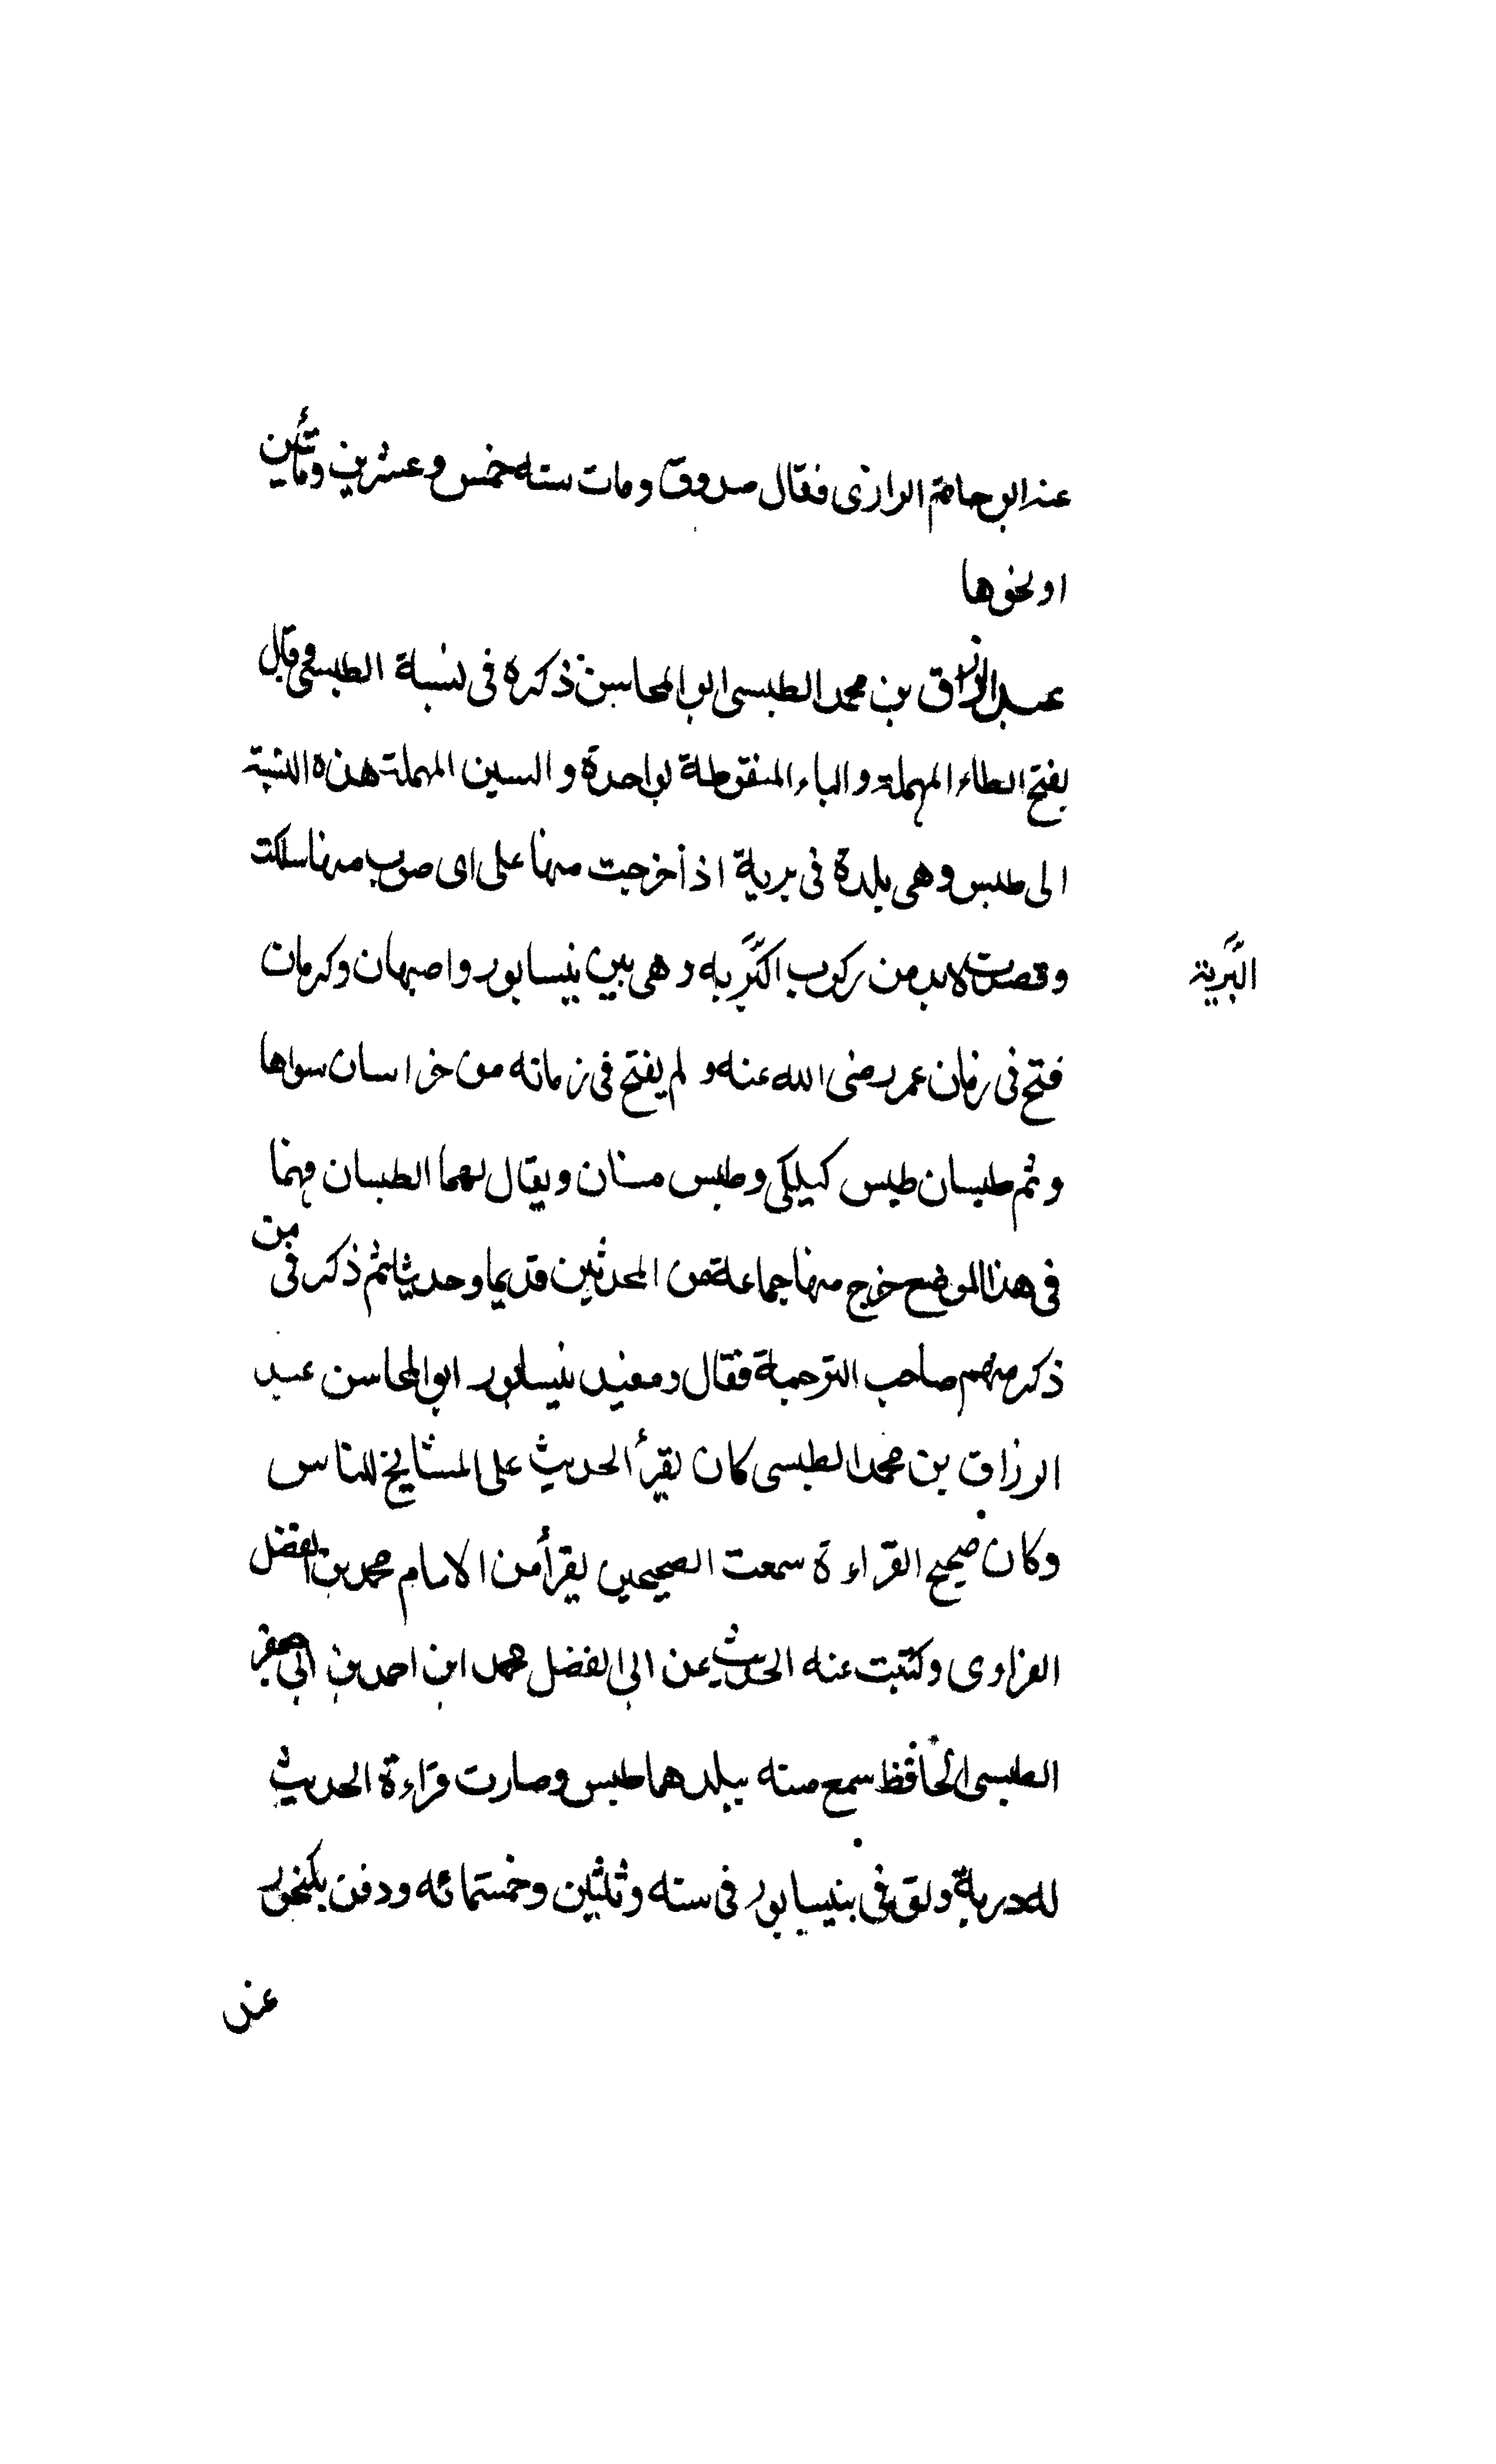 عنه ابو حاتم الرازى فقال صدوق ومات سنه خمس وعشرين ومأتين
او نحوها
عبد الرزاق بن محمد الطبسى ابو المحاسن ذكره فى نسبة الطبسى وقال
بفتح الطاء المهملة والباء المنقوطة بواحدة والسين المهملة هذه النسبة
الى طبس وهى بلدة فى برية اذا خرجت منها على اى صوب منها سلكت
وقصدت لابد من ركوب البّرية وهى بين نيسابور واصبهان وكرمان
البّرية
فتح فى زمان عمر رضى الله عنه و لم يفتح فى زمانه من خراسان سواها
وثم طبسان طبس كيليكى وطبس مسنان ويقال لهما الطبسان فهما
فى هذا الموضع خرج منها جماعة من المحدثين قديما وحديثا ثم ذكر فى من
ذكر منهم صاحب الترجمة فقال ومفيد نيسابور ابو المحاسن عبد
الرزاق بن محمد الطبسى كان يقرأ الحديث على المشايخ للناس
وكان صحيح القراءة سمعت الصحيحين يقرأ من الامام محمد بن الفضل
الفراوى وكتبت عنه الحديث عن ابى الفضل محمد ابن احمد بن ابى جعفر
الطبسى الحافظ سمع منه ببلدهما طبس وصارت قراءة الحديث
له دربة وتوفى بنيسابور فى سنه وثلثين وخمسمائه ودفن بكنجور
عند